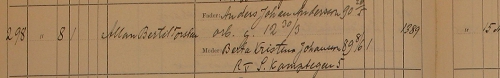 Fader Anders Johan Andersson 90 20/5
298 " 8/1 Allan Bertel Torsten arb. g. 12 30/3 1889 " 15
Moder Berta Kristina Johansson 89 8/6
R F L. Kamptegen 5